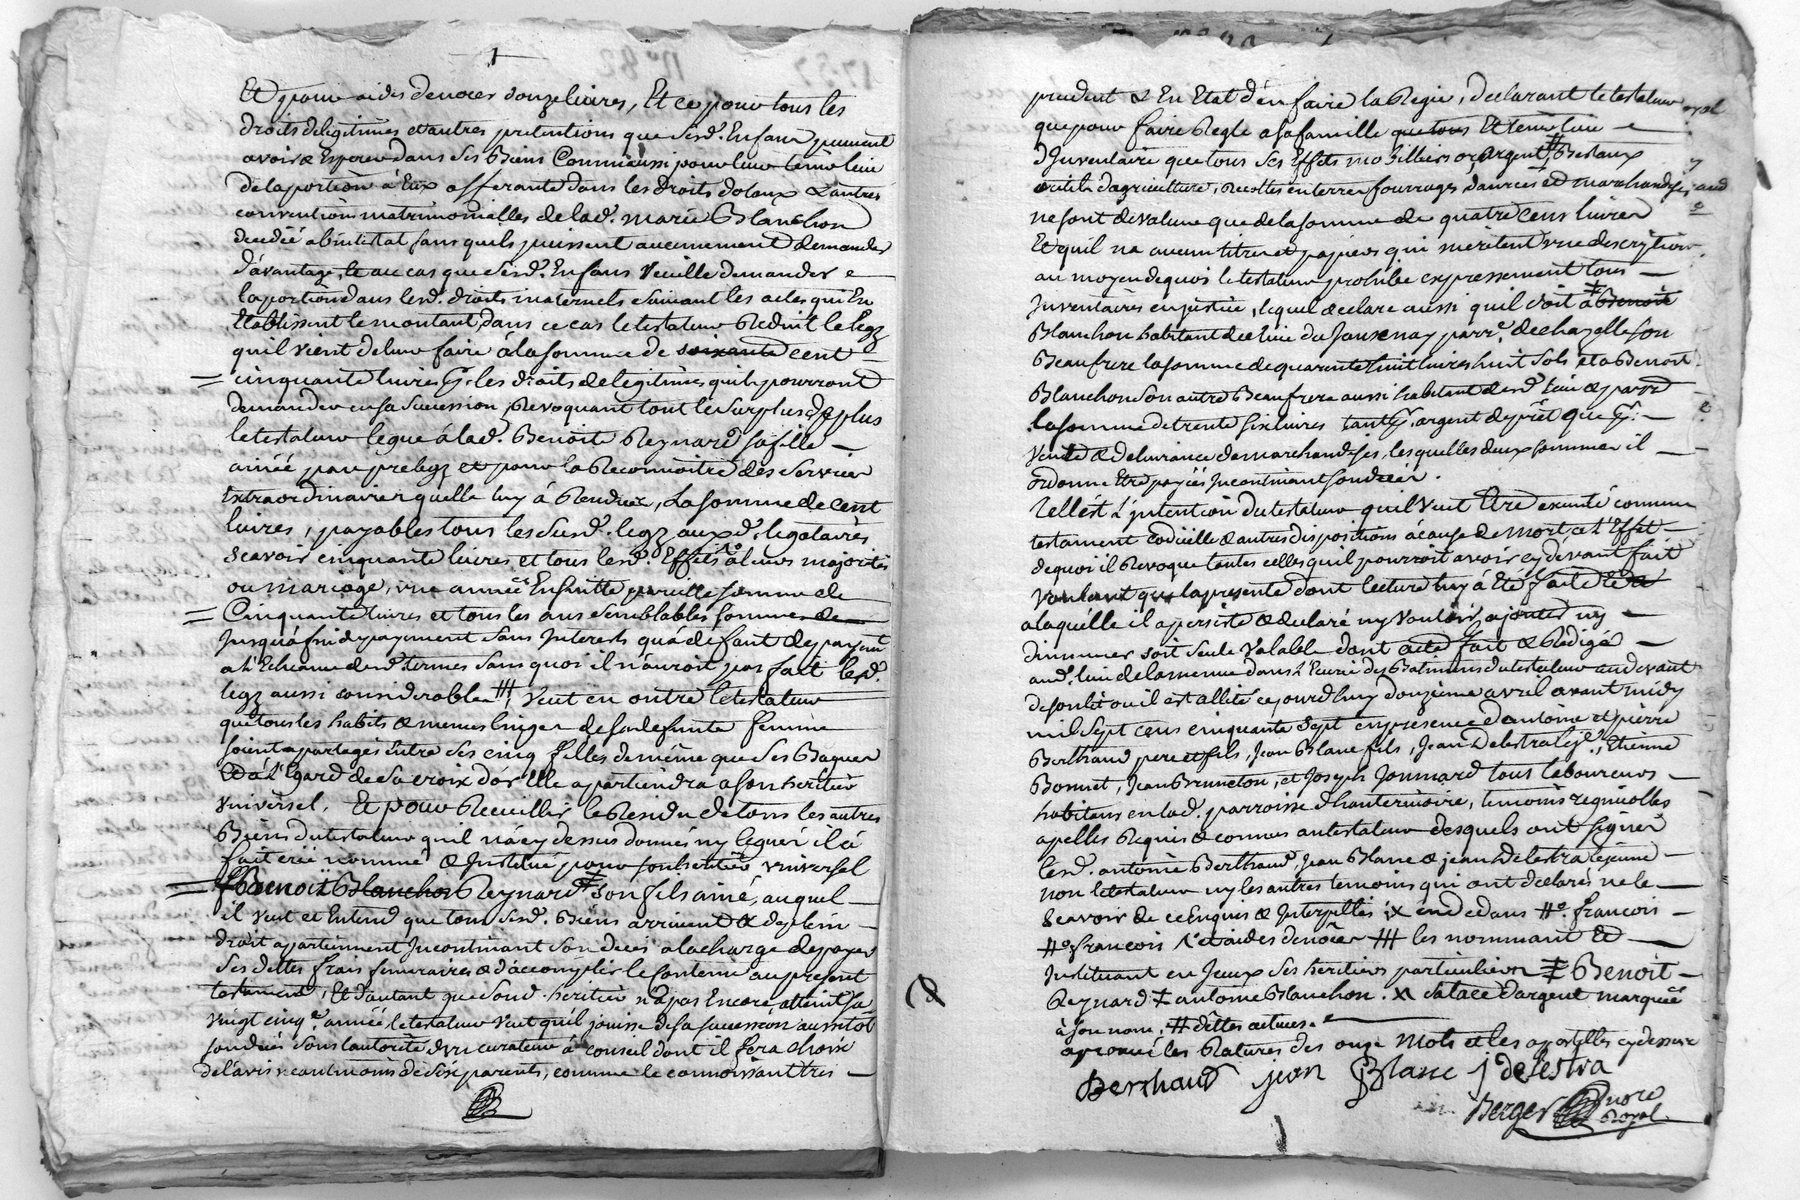 Et pour aides de noces douze livres, Et ce pour tous les
droits de legitimes et autres pretentions que sesd. Enfans peuvent
avoir & Esperer dans ses Biens Comm'aussi pour leur tenir lieu
de la portion à Eux afferante dans les droits dotaux & autres
conventions matrimonialles de lad. marie Blanchon
decedée abintestat sans quils puissent aucunement demander
d'avantage, le au cas que sesd. Enfans Veuille demander
la portion dans lesd. droits maternels suivant les actes qui En
Etablissent le montant, dans ce cas le testateur Reduit le legz
qu'il vient de leur faire à la somme de soixante cent
cinquante livres pr. les droits de legitimes quils pourront
demander en sa sucession, Revoquant tout le surplus, de plus
le testateur legue à lad. Benoite Reynard sa fille
ainée par prelegz et pour la Reconnoitre des Services
Extraordinaires quelle luy à Rendues, La somme de cent
livres, payables tous lesSusd. legz auxd. legataires
Scavoir cinquante livres et tous lesd. Effets à leurs majorités
ou mariage, une année Ensuitte pareille somme de
Cinquante livres et tous les ans semblables sommes de
jusqu'à fin de payement sans Interests qu'à deffaut de payemt
a l'Echeance desd. termes sans quoi il n'auroit pas fait lesd.
legz aussi considerables ### Veut en outre le testateur
que tous les habits & memes linges de sa deffunte femme
soient apartagés Entre ses cinq filles de même que ses Bagues
Et à l'Egard de sa croix d'or Elle apartiendra a son heritier
Universel. Et pour Recueillir le Residu de tous les autres
Biens du testateur qu'il n'a cy dessus donnés ny legués il à
fait créé nommé & Institué pour son heritier universel
Benoit Blanchon Reynard ‡ son fils ainé, auquel
il veut et Entend que tous sesd. Biens arrivent & de plein
droit apartiennent Incontinant son decés a la charge de payer
Ses dettes frais funeraires & d'accomplir le contenu au present
testament, Et d'autant que sond. heritier n'a pas Encore atteint sa
vingt cinqe. année le testateur veut qu'il jouisse de sa succession aussitot
son deces sous l'autorité d'un curateur à conseil dont il fera choix
de l'avis neantmoins de six parents, comme le connoissant tres
prudent & En Etat d'en faire la Regie, declarant le testateur
que pour faire Regle a sa famille que tous Et tenir lieu
d'Inventaire que tous ses Effets mobilliers or, argent, ++ Bestaux
outils d'agriculture, recoltes en terre fourrages, danrées et marchandises
ne sont de valeur que de la somme de quatre cens livres
Et qu'il na aucun titres et papiers qui meritent une description
au moyen de quoi le testateur prohibe expressement tous
Inventaires en justice, lequel declare aussi qu'il doit à ‡ Benoit
Blanchon habitant du lieu du parre. de chazelle son
Beaufrere la somme de quarente huit livres huit sols et a Benoit
Blanchon son autre Beaufrere aussi habitant desd. lieu & parre
la somme de trente six livres tant pr. argent de pret que pr.
Vente & delivrance de marchandises, lesquelles deux sommes il
ordonne Etre payées Incontinant son decés.
Tell'est L'jntention du testateur qu'il Veut Etre executé comme
testament codicille & autres dispositions à cause de mort a l'Effet
de quoi il Revoque toutes celles qu'il pourroit avoir cy devant fait
voulant que la presente dont lecture luy à Eté faite Et a
a laquélle il a persisté & declaré ny vouloir ajouter ny
diminuer soit seule valable dont acte fait & Redigé
aud. lieu de dans l'Ecurie des Batimens du testateur au devant
de son lit ou il est allité ce jourd'huy douzieme avril avant midy
mil Sept cens cinquante Sept en presence d'antoine et pierre
Berthaud pere et fils, Jean Blanc fils, Jean Delestra , Etienne
Bonnet, Jean Bruneton, et Joseph Jommard tous laboureurs
habitans en lad. parroisse d'hauterivoire, temoins requis &
apellés Requis & connus au testateur desquels ont signer
lesd. antoine Berthaud, Jean Blanc & jean Delestra lejeune
non le testateur ny les autres temoins qui ont declarés ne le
Scavoir de ce Enquis & Interpellés ix end cedans #o. francois
#o francois \ et aides de noces ### les nommant Et
Instituant en Iceux ses heritiers particuliers ‡ Benoit
Reynard ‡ antoine Blanchon. x sa tace d'argent marquée
à son nom, # dettes actives.
aprouvé les Ratures des onze mots et les apostilles cy dessus
Berthaud jean Blanc j delestra
Berger nore
Royal